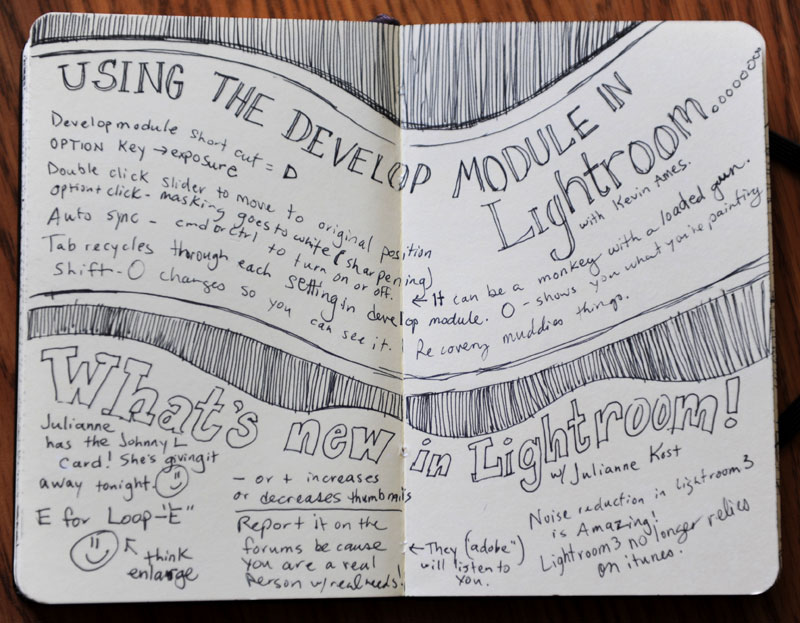 USING THE DEVELOP MODULE IN
Lightroom.
with Kevin Ames.
Develop module short cut = D
OPTION KEY → exposure
Double click slider to move to original position
option + click - masking goes to white (sharpening)
Auto sync - cmd or ctrl to turn on or off.
← It can be a monkey with a loaded gun.
Tab recycles through each setting in develop module.
O - shows you what you're painting
Shift - O changes so you can see it.
Recovery muddies things.
What's new in Lightroom!
w/ Julianne Kost
Julianne
has the Johnny L
card! She's giving it
away tonight.
E for Loop - "E"
↖ think
enlarge
- or + increases
or decreases thumbnails
Report it on the
forums because
you are a real
person w/ real needs!
← They ("adobe")
will listen to
you.
Noise reduction in Lightroom 3
is Amazing!
Lightroom 3 no longer relies
on itunes.